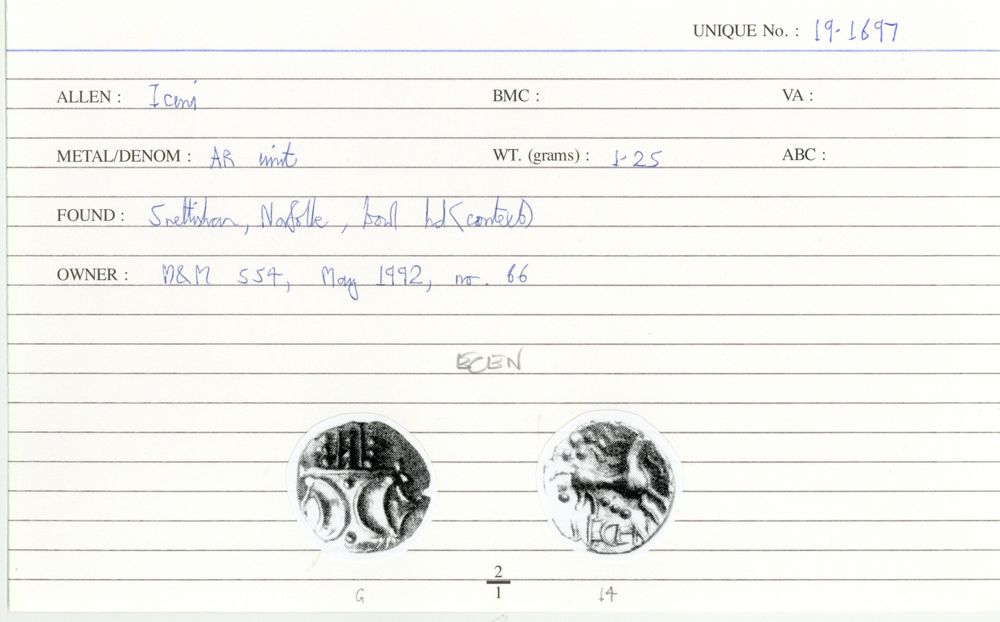 UNIQUE No. : 19-1697
ALLEN : Iceni BMC : VA :
METAL/DENOM : AR unit WT. (grams) : 1.25 ABC :
FOUND : Snettisham, Norfolk, bowl hd (contents)
OWNER : M&M 554, May 1992, no. 66
ECEN
2
1
G 14